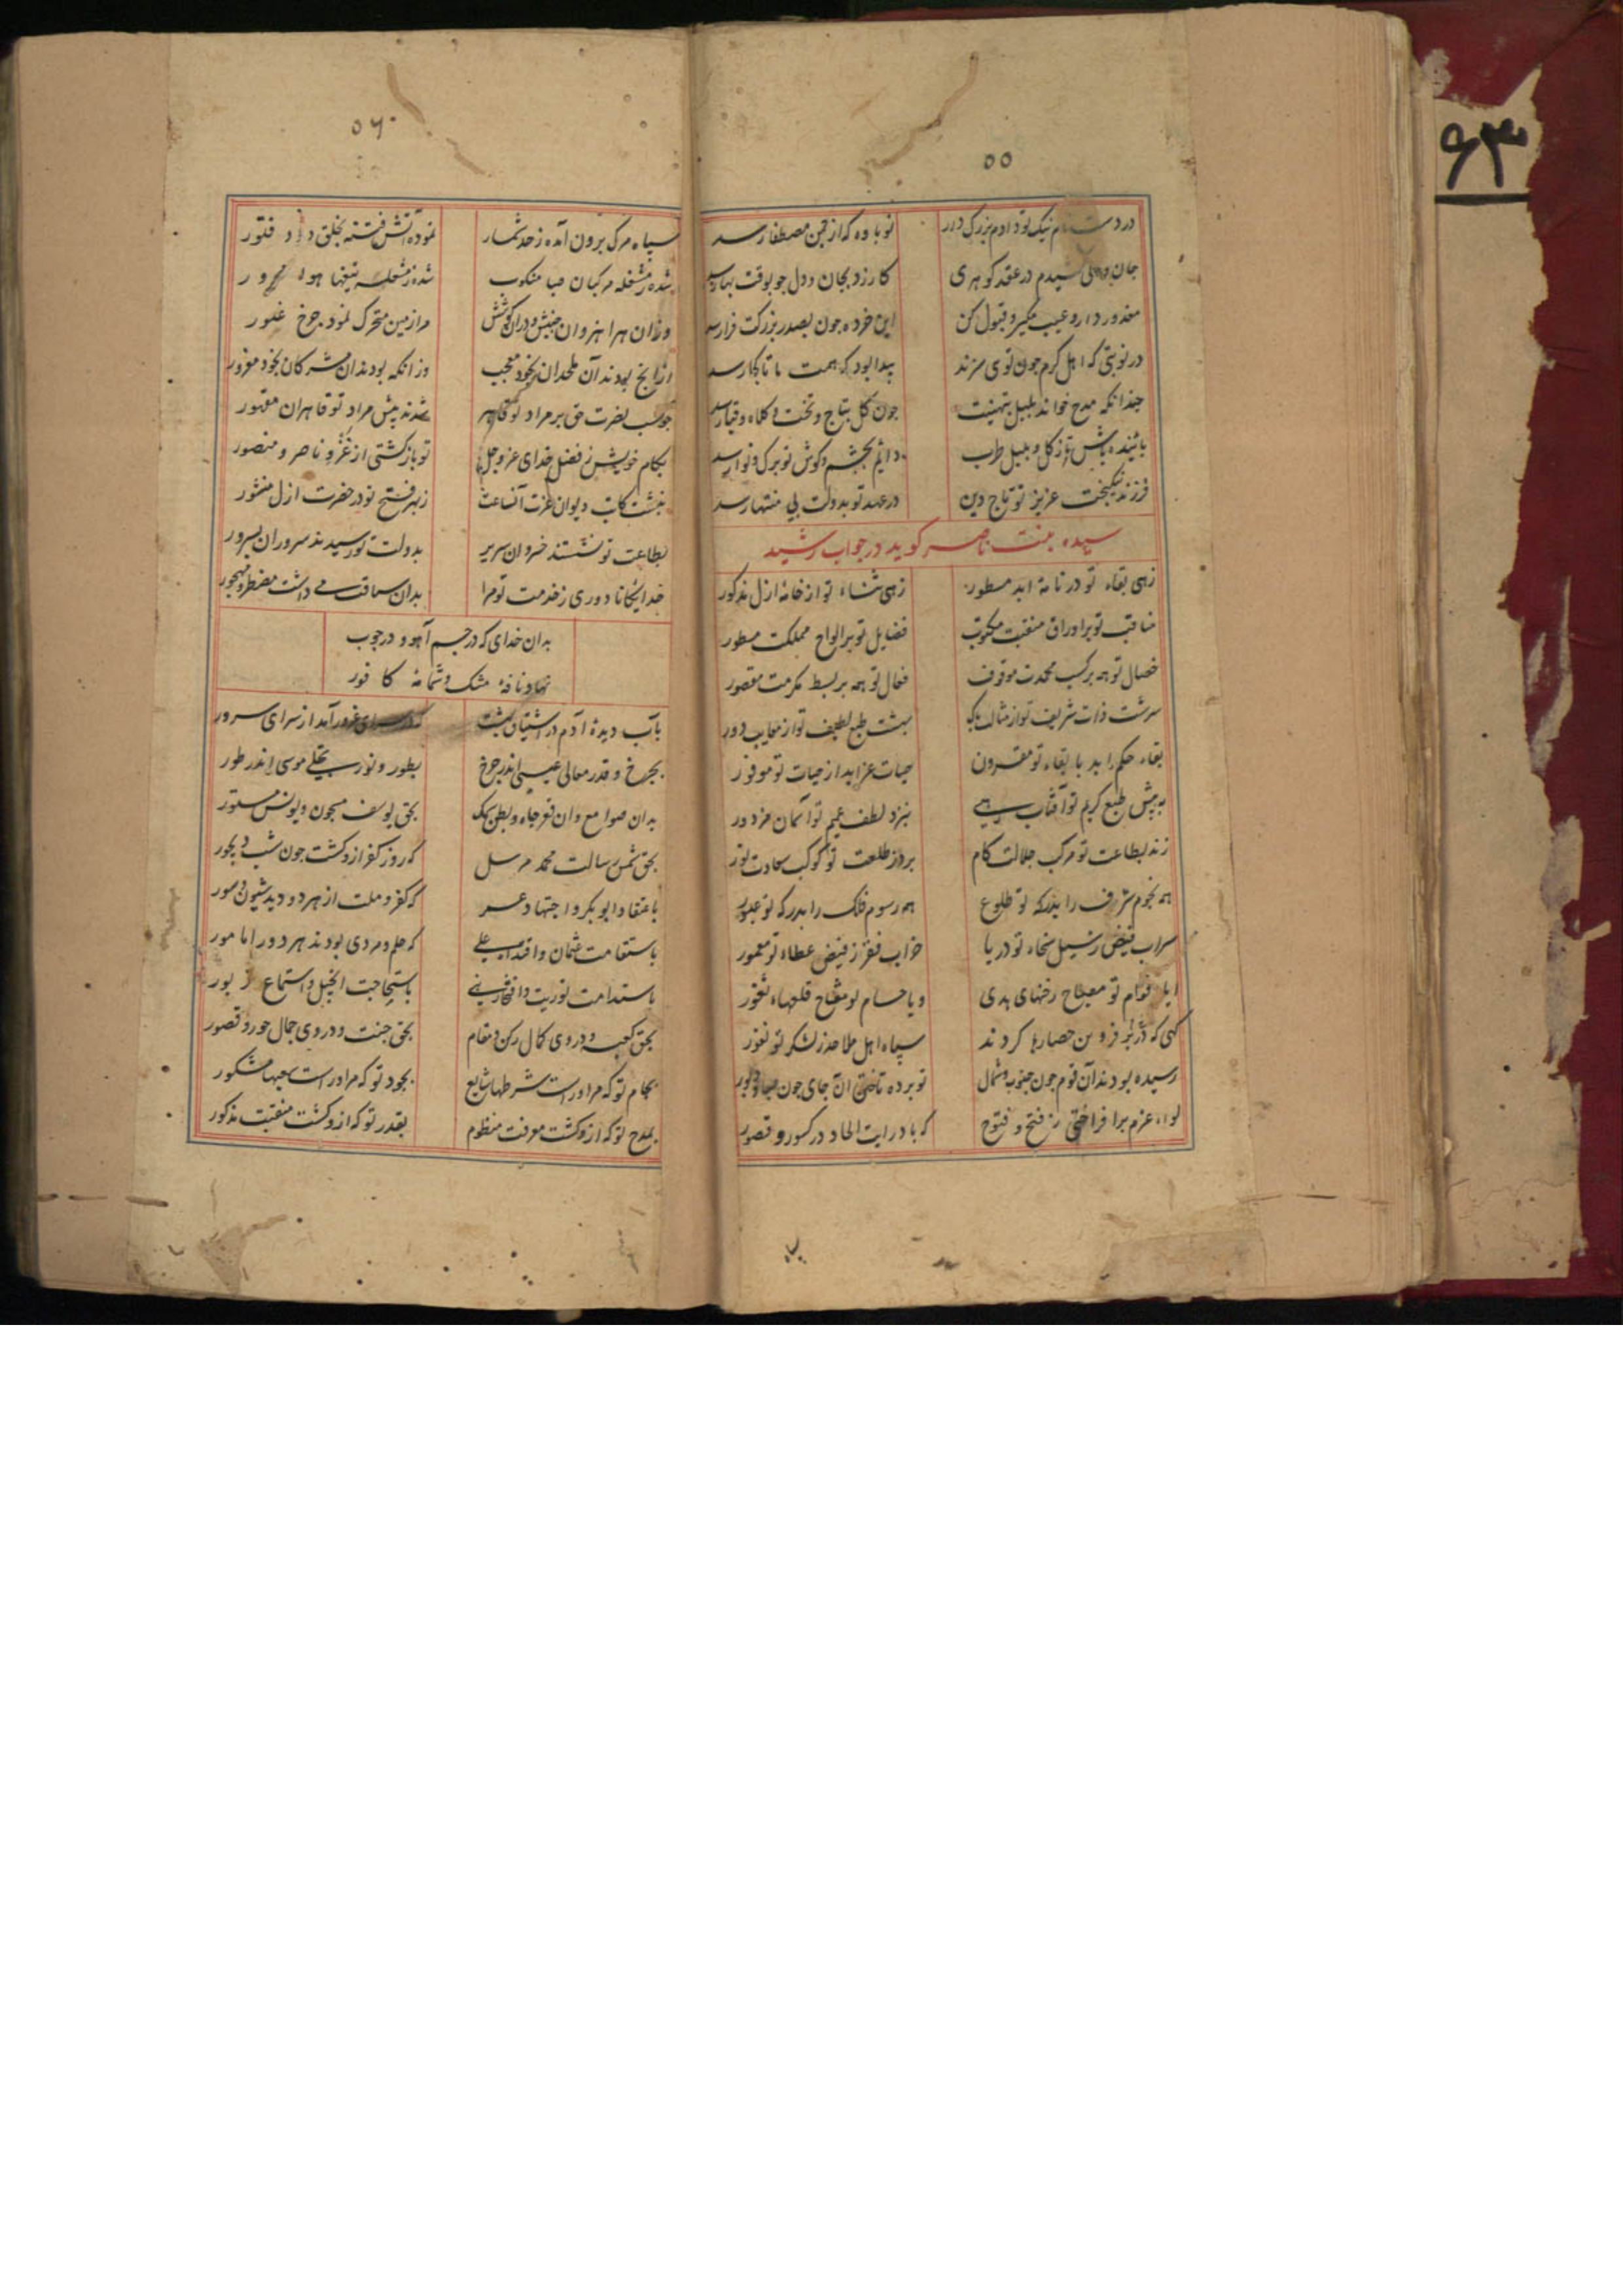 ۵۵
در دست نام نیک تو دادم بزرگ در
نوباوه که از چمن مصطفا رسد
جان و دل کشیدم در عقد کوهری
کارزد بجان و دل جو بوقت بها رسد
معذور دار و عیب مکیر و قبول کن
این خرده جون بصدر بزرکت فرا رسد
در نوبتی که اهل کرم جون توی سزند
پیدا بود که همت ما تا کجا رسد
جندانکه مدح خواند بلبل بتهنیت
جون کل بتاج و تخت و کلاه و قبا رسد
پاینده باش تا ز کل و بلبل طرب
دایم بجشم و کوش تو برک و نوا رسد
فرزند نیکبخت عزیز تو تاج دین
در عهد تو بدولت بی منتها رسد
سیده بنت ناصر کوید در جواب رشید
زهی بقاء تو در نامهٔ ابد مسطور
زهی ثناء تو از خامهٔ ازل مذکور
مناقب تو بر اوراق منقبت مکتوب
فضایل تو بر الواح مملکت مسطور
خصال تو همه بر کسب محمدت موقوف
فعال تو همه بر بسط مکرمت مقصور
سرشت ذات شریف تو از مثالب پاک
بهشت طبع لطیف تو از معایب دور
بقاء حکم ابد با بقاء تو مقرون
حیات عز ابد از حیات تو موفور
به پیش طبع کریم تو آفتاب رهی
بنزد لطف عمیم تو آسمان مزدور
زند بطاعت تو مرکب جلالت کام
برد ز طلعت تو کوکب سعادت نور
همه نجوم شرف را بدرکه تو طلوع
همه رسوم فلک را بدرکه تو عبور
سراب فیض ز سیل سخاء تو دریا
خراب فقر ز فیض عطاء تو معمور
ایا قوام تو مصباح رخنهای هدی
و یا حسام تو مفتاح قلعهاء ثغور
کهی که بر در قزوین حصارها کردند
سپاه اهل ملاحد ز لشکر تو نفور
رسیده بودند آن قوم جون جنوب و شمال
تو برده تاختن آن جای جون صبا و دبور
لواء عزم برافراختی ز فتح و فتوح
که باد رایت الحاد در کسور و قصور
۵۶
سپاه مرک برون آمده ز حد شمار
نموده آتش فتنه بخلق دود و فتور
شده ز مشغله مرکبان صبا منکوب
شده ز مشعله تیغها هوا
وزان هزاهز وان جنبش و دران کوشش
مر از مین متحرک نمود جرخ غیور
ازانج بودند آن ملحدان بخود معجب
وز انکه بودند ان مشرکان بخود مغرور
جو سبب نصرت حق بر مراد تو قاهر
شدند پیش مراد تو قاهران مقهور
بکام خویش ز فضل خدای عز و جل
تو باز کشتی از غزو ناصر و منصور
نبشت کاتب دیوان عزت آنساعت
ز بهر فتح تو در حضرت ازل منشور
بطاعت تو نشستند خسروان سریر
بدولت تو رسیدند سروران بسرور
خدایکانا دوری ز خدمت تو مرا
بدان سماقت می داشت مضطر و مهجور
بدان خدای که در جسم آهو و در جوب
نهاد نافهٔ مشک و شمامهٔ کافور
بآب دیدهٔ آدم در اشتیاق بهشت
که در سرای غرور آمد از سرای سرور
بجرخ و قدر معالی عیسی اندر جرخ
بطور و نور تجلی موسی اندر طور
بدان صوامع وان قعر جاه و بطن سمک
بحق یوسف مسجون و یونس مستور
بحق شمس رسالت محمد مرسل
که روز کفر ازو کشت جون شب دیجور
باعتقاد ابوبکر و اجتهاد عمر
که کفر و ملت از هر دو دید شیون و سور
باستقامت عثمان و اقتداء علی
که علم و مردی بودند هر دو را مامور
باستدامت توریت و
باستجابت انجیل و استماع زبور
بحق کعبه و دروی کمال رکن و مقام
بحق جنت و دروی جمال حور و قصور
بجام تو که مر او راست شرطها شایع
بجود تو که مر او راست سعیها مشکور
بمدح تو که ازو کشت معرفت منظوم
بقدر تو که ازو کشت منقبت مذکور
۶۳